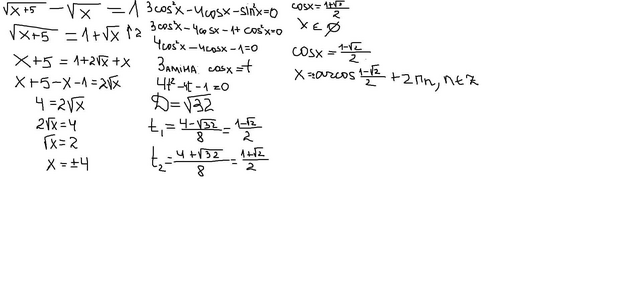 √x+5 - √x = 1
√x+5 = 1+√x ↑2
x+5 = 1+2√x+x
x+5-x-1=2√x
4=2√x
2√x=4
√x=2
x=±4
3cos²x-4cosx-sin²x=0
3cos²x-4cosx-1+cos²x=0
4cos²x-4cosx-1=0
Заміна cosx=t
4t²-4t-1=0
D=√32
t₁=4-√32/8=1-√2/2
t₂=4+√32/8=1+√2/2
cosx=1+√2/2
x∈∅
cosx=1-√2/2
x=arcos 1-√2/2+2πn, n∈z